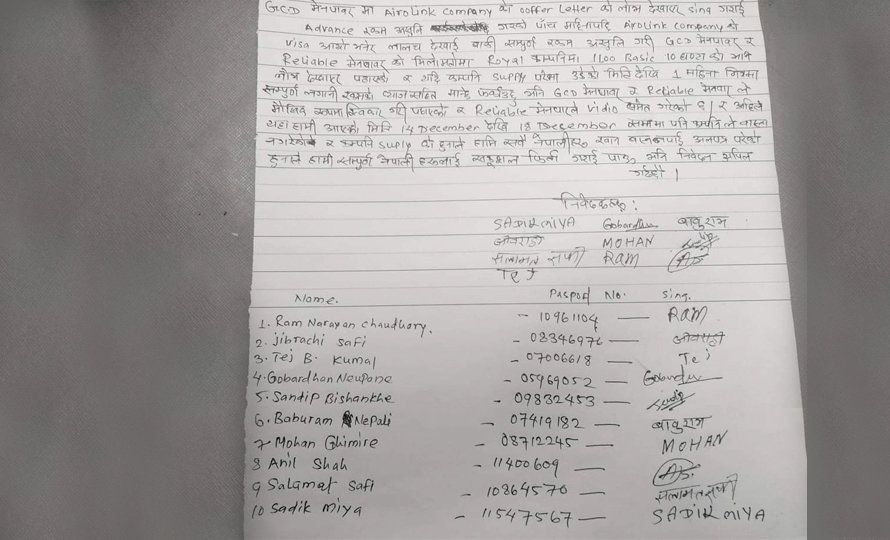 GCD मेनपावर मा Airolink company को offer Letter को लोभ देखाएर sing गराई
Advance रकम असुलि गरेको पाँच महिनापछि Airolink company को
visa आयो भनेर लालच देखाई बाकी सम्पुर्ण रकम असुलि गरी GCD मेनपावर र
Reliable मेनपावर को मिलोमतोमा Royal कम्पनिमा 1100 Basic 10 घण्टा को
लोभ देखाएर पठाएको र कम्पनि supply परेको मिति देखि 1 महिना भित्रमा
सम्पुर्ण लगानी रकमको व्याज सहित GCD मेनपावर र Reliable मेनपावर ले
गरी पठाएको र Reliable मेनपावरले Vidio समेत गरेको छ । र अहिले
यहा हामी आएको मिति 14 December देखि 18 December सम्ममा पनि कम्पनि ले वास्ता
नगरेको र कम्पनि suply को हुनाले हामि सबै नेपालीहरु अलपत्र परेको
हुनाले हामी सम्पुर्ण नेपाली हरुलाई सकुशल फिर्ता गराई पाऊ भनि निवेदन
गर्दछौ ।
निवेदकहरु :
SADIK MIYA Gobardhu बाबुराम
MOHAN
सलामत सफी RAM AS
Tej
Name. Pasport No. Sing.
1. Ram Narayan chaudhory. - 10961104 — RAM
2. jibrachi safi - 08346976 —
3. Tej B. Kumal - 07006618 — Tej
4. Gobardhan Neupane - 05969052 — Gobardhu
5. Sandip Bishankhe - 09832453 —
6. Baburam Nepali - 07419182 — बाबुराम
7 Mohan Ghimire - 08712245 — MOHAN
8 Anil Shah - 11400609 — AS.
9 Salamat safi - 10864570 — सलामत सफी
10 Sadik miya - 11547567 — SADIK MIYA